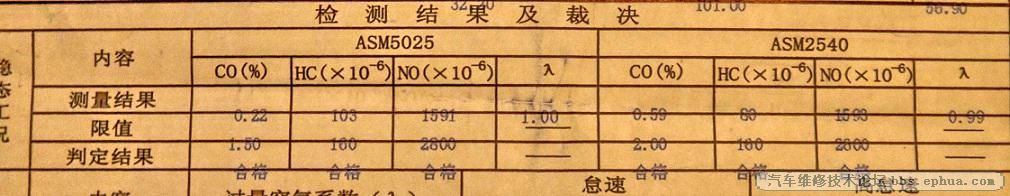 32.20 101.00 56.90
检测结果及裁决
稳态工况
内容 ASM5025 ASM2540
CO(%) HC(×10⁻⁶) NO(×10⁻⁶) λ CO(%) HC(×10⁻⁶) NO(×10⁻⁶) λ
测量结果 0.22 103 1591 1.00 0.59 80 1593 0.99
限值 1.50 160 2800 — 2.00 160 2800 —
判定结果 合格 合格 合格 — 合格 合格 合格 —
内容 过量空气系数(λ) 怠速 高怠速
汽车维修技术论坛 bbs.ephua.com